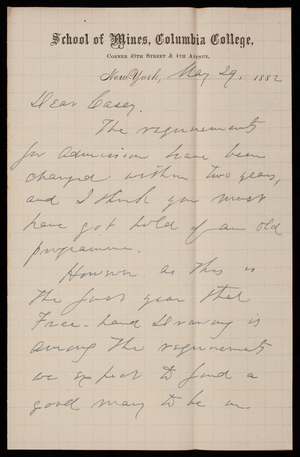 School of Mines, Columbia College,
Corner 49th Street & 4th Avenue,
New York, May 29, 1882
Dear Casey.
The requirements
for admission have been
changed within two years,
and I think you must
have got hold of an old
programme.
However as this is
the first year that
Free-hand drawing is
among the requirements
we expect to find a
good many to be